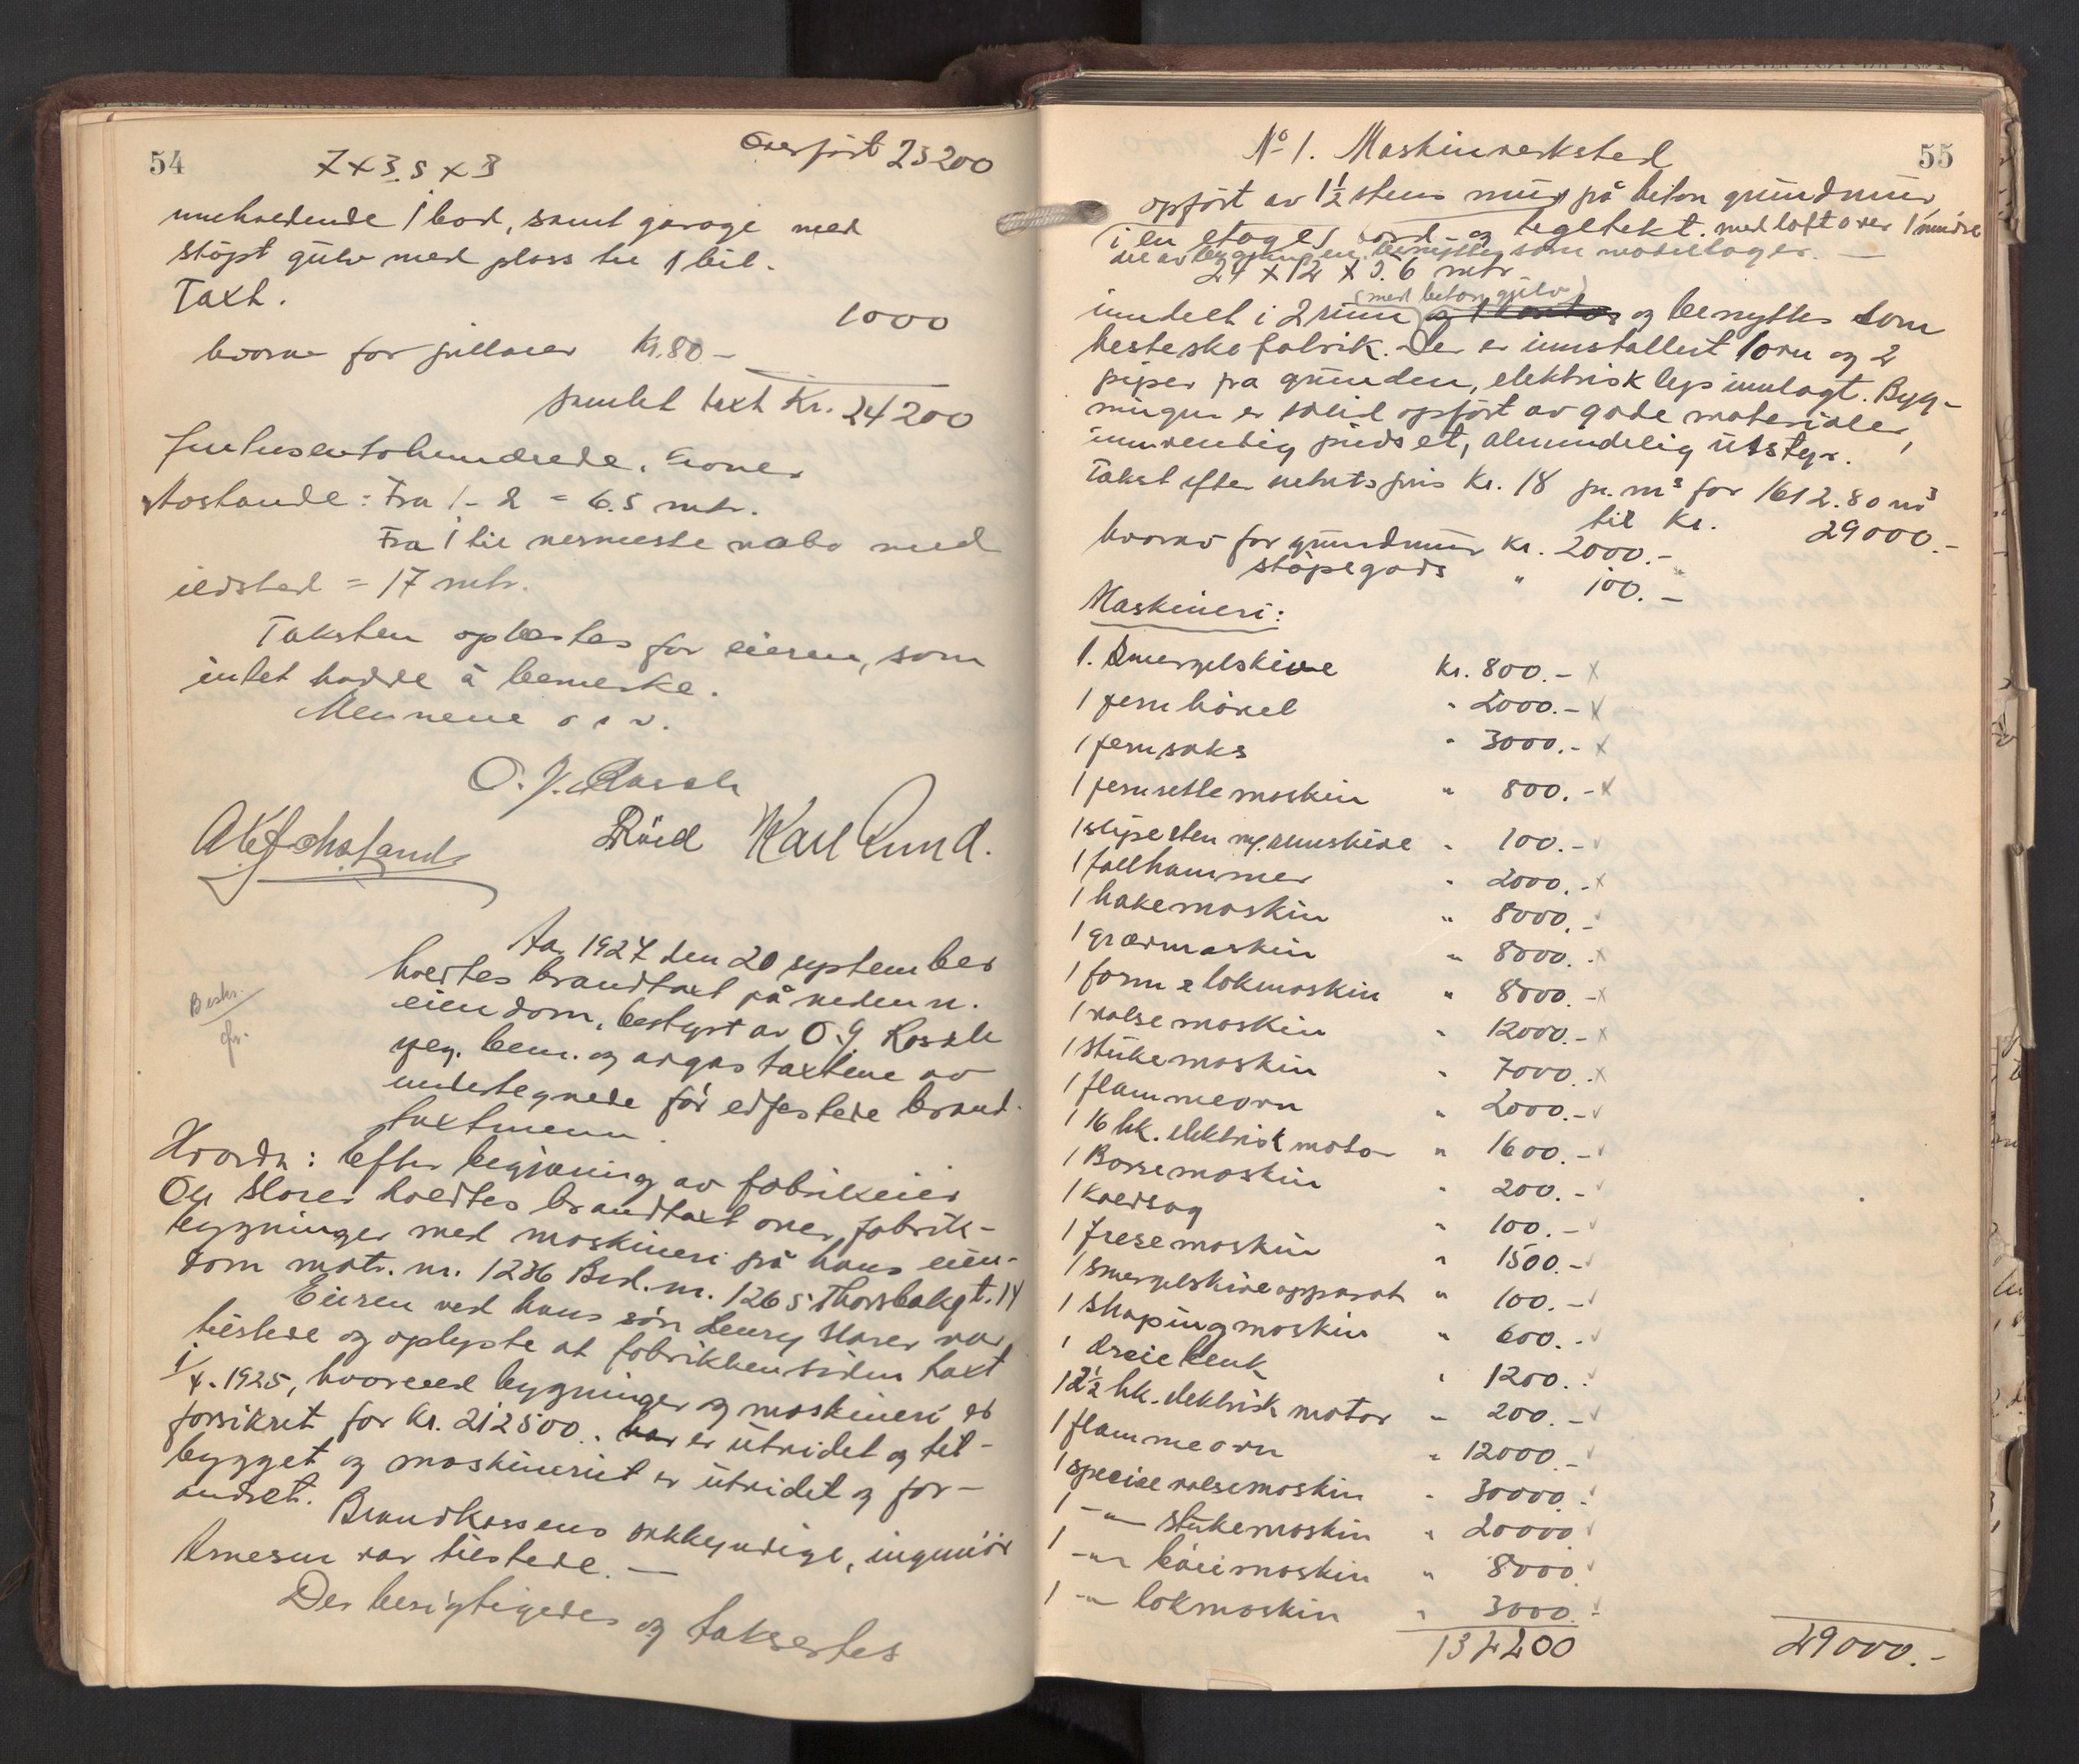 54
7 x 3.5 x 3
Overført 23200
inneholdende 1 bod, samt garage med
støpt gulv med plass til 1 bil.
Taxt.
1000
hvorav for pillarer Kr. 80 –
samlet taxt Kr. 24200
kroner
Avstande: Fra 1 – 2 = 6.5 mtr.
Fra 1 til nermeste nabo med
ildsted = 17 mtr.
Taksten oplestes for eieren, som
intet hadde å bemerke.
Mennene o s v.
O. J. Rasch
Karl Lund.
Beskr.
Aar 1927 den 20 september
holdtes brandtaxt på nedenn.
eiendom, bestyrt av O. J. Rasch
og avgas taxtene av
undertegnede før edfestede brand-
taxtmenn.
Hvorda: Efter begjæring av fabrikeier
holdtes brandtaxt over fabrik-
bygninger med maskineri på hans eien-
dom matr. nr. 1236 Brd. nr. 1265 Thorsbakgt. 14
Eieren ved hans søn Henry var
tilstede og oplyste at fabrikken siden taxt
1/4. 1925, hvorved bygninger og maskineri er
forsikret for Kr. 212500.- er utvidet og til-
bygget og maskineriet er utvidet og for-
andret.
Brandkassens sakkyndige, ingeniør
Arnesen var tilstede. —
Der besigtigedes og taksertes
55
No 1. Maskinverksted
opført av 1½ stens mur på beton grundmur,
i en etage, bord- og tegltekt. med loft over 1 mindre
del av bygningen benyttes som modellager. —
24 x 12 x 5.6 mtr.
(med beton gulv)
inndelt i 2 rum og benyttes som
hesteskofabrik. Der er innstallert 1 ovn og 2
piper fra grunden, elektrisk lys innlagt. Byg-
ningen er solid opført av gode materialer,
innvendig pudset, almindelig utstyr.
Takst efter enhetspris Kr. 18 pr. m³ for 1612.80 m³
til Kr. 29000.-
hvorav for grundmur Kr. 2000.-
støpegods " 100.-
Maskineri:
1. Smergelskive Kr. 800.- x
1 jernhøvel " 2000.- x
1 jernsaks " 3000.- x
1 jernrettemaskin " 800.- x
1 slipesten m/. remskive " 100.- v
1 fallhammer " 2000.- x
1 hakemaskin " 8000.- v
1 gradmaskin " 8000.- x
1 form & lokmaskin " 8000.- x
1 valsemaskin " 12000.- x
1 stukemaskin " 7000.- x
1 flammeovn " 2000.- v
1 16 hk. elektrisk motor " 1600.- v
1 Borremaskin " 200.- v
1 koldsag " 100.- v
1 fresemaskin " 1500.- v
1 smergelskiveapparat " 100.- v
1 shapingmaskin " 600.- v
1 dreiebenk " 1200.- v
1 2½ hk. elektrisk motor " 200.- v
1 flammeovn " 12000.- v
1 special valsemaskin " 30000.- v
1 –"– stukemaskin " 20000 v
1 –"– bøiemaskin " 8000 v
1 –"– lokmaskin " 3000.- v
132200
29000.-